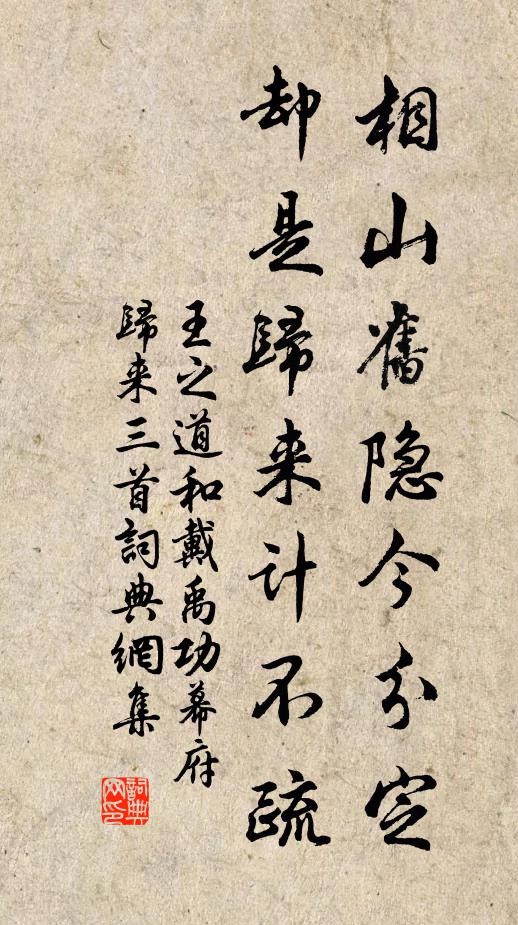 相山舊隐今分定
却是歸来計不疏
王之道和戴禹功幕府
歸来三首詞典網集
詞典网印